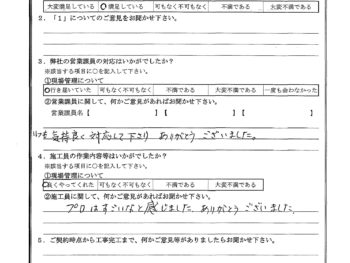 大変満足している 満足している 可もなく不可もなく 不満である 大変不満である
2．「1」についてのご意見をお聞かせ下さい。
3．弊社の営業課員の対応はいかがでしたか？
※該当する項目に○を記入して下さい。
①現場管理について
行き届いていた 可もなく不可もなく 不満である 大変不満である 一度も会わなかった
②営業課員に関して、何かご意見があればお聞かせ下さい。
営業課員名【 】【 】【 】
気持良く対応して下さり ありがとうございました。
4．施工員の作業内容等はいかがでしたか？
※該当する項目に○を記入して下さい。
①現場管理について
良くやってくれた 可もなく不可もなく 不満である 大変不満である
②施工員に関して、何かご意見があればお聞かせ下さい。
プロはすごいなと感じました。ありがとうございました。
5．ご契約時点から工事完工まで、何かご意見等がありましたらお聞かせ下さい。